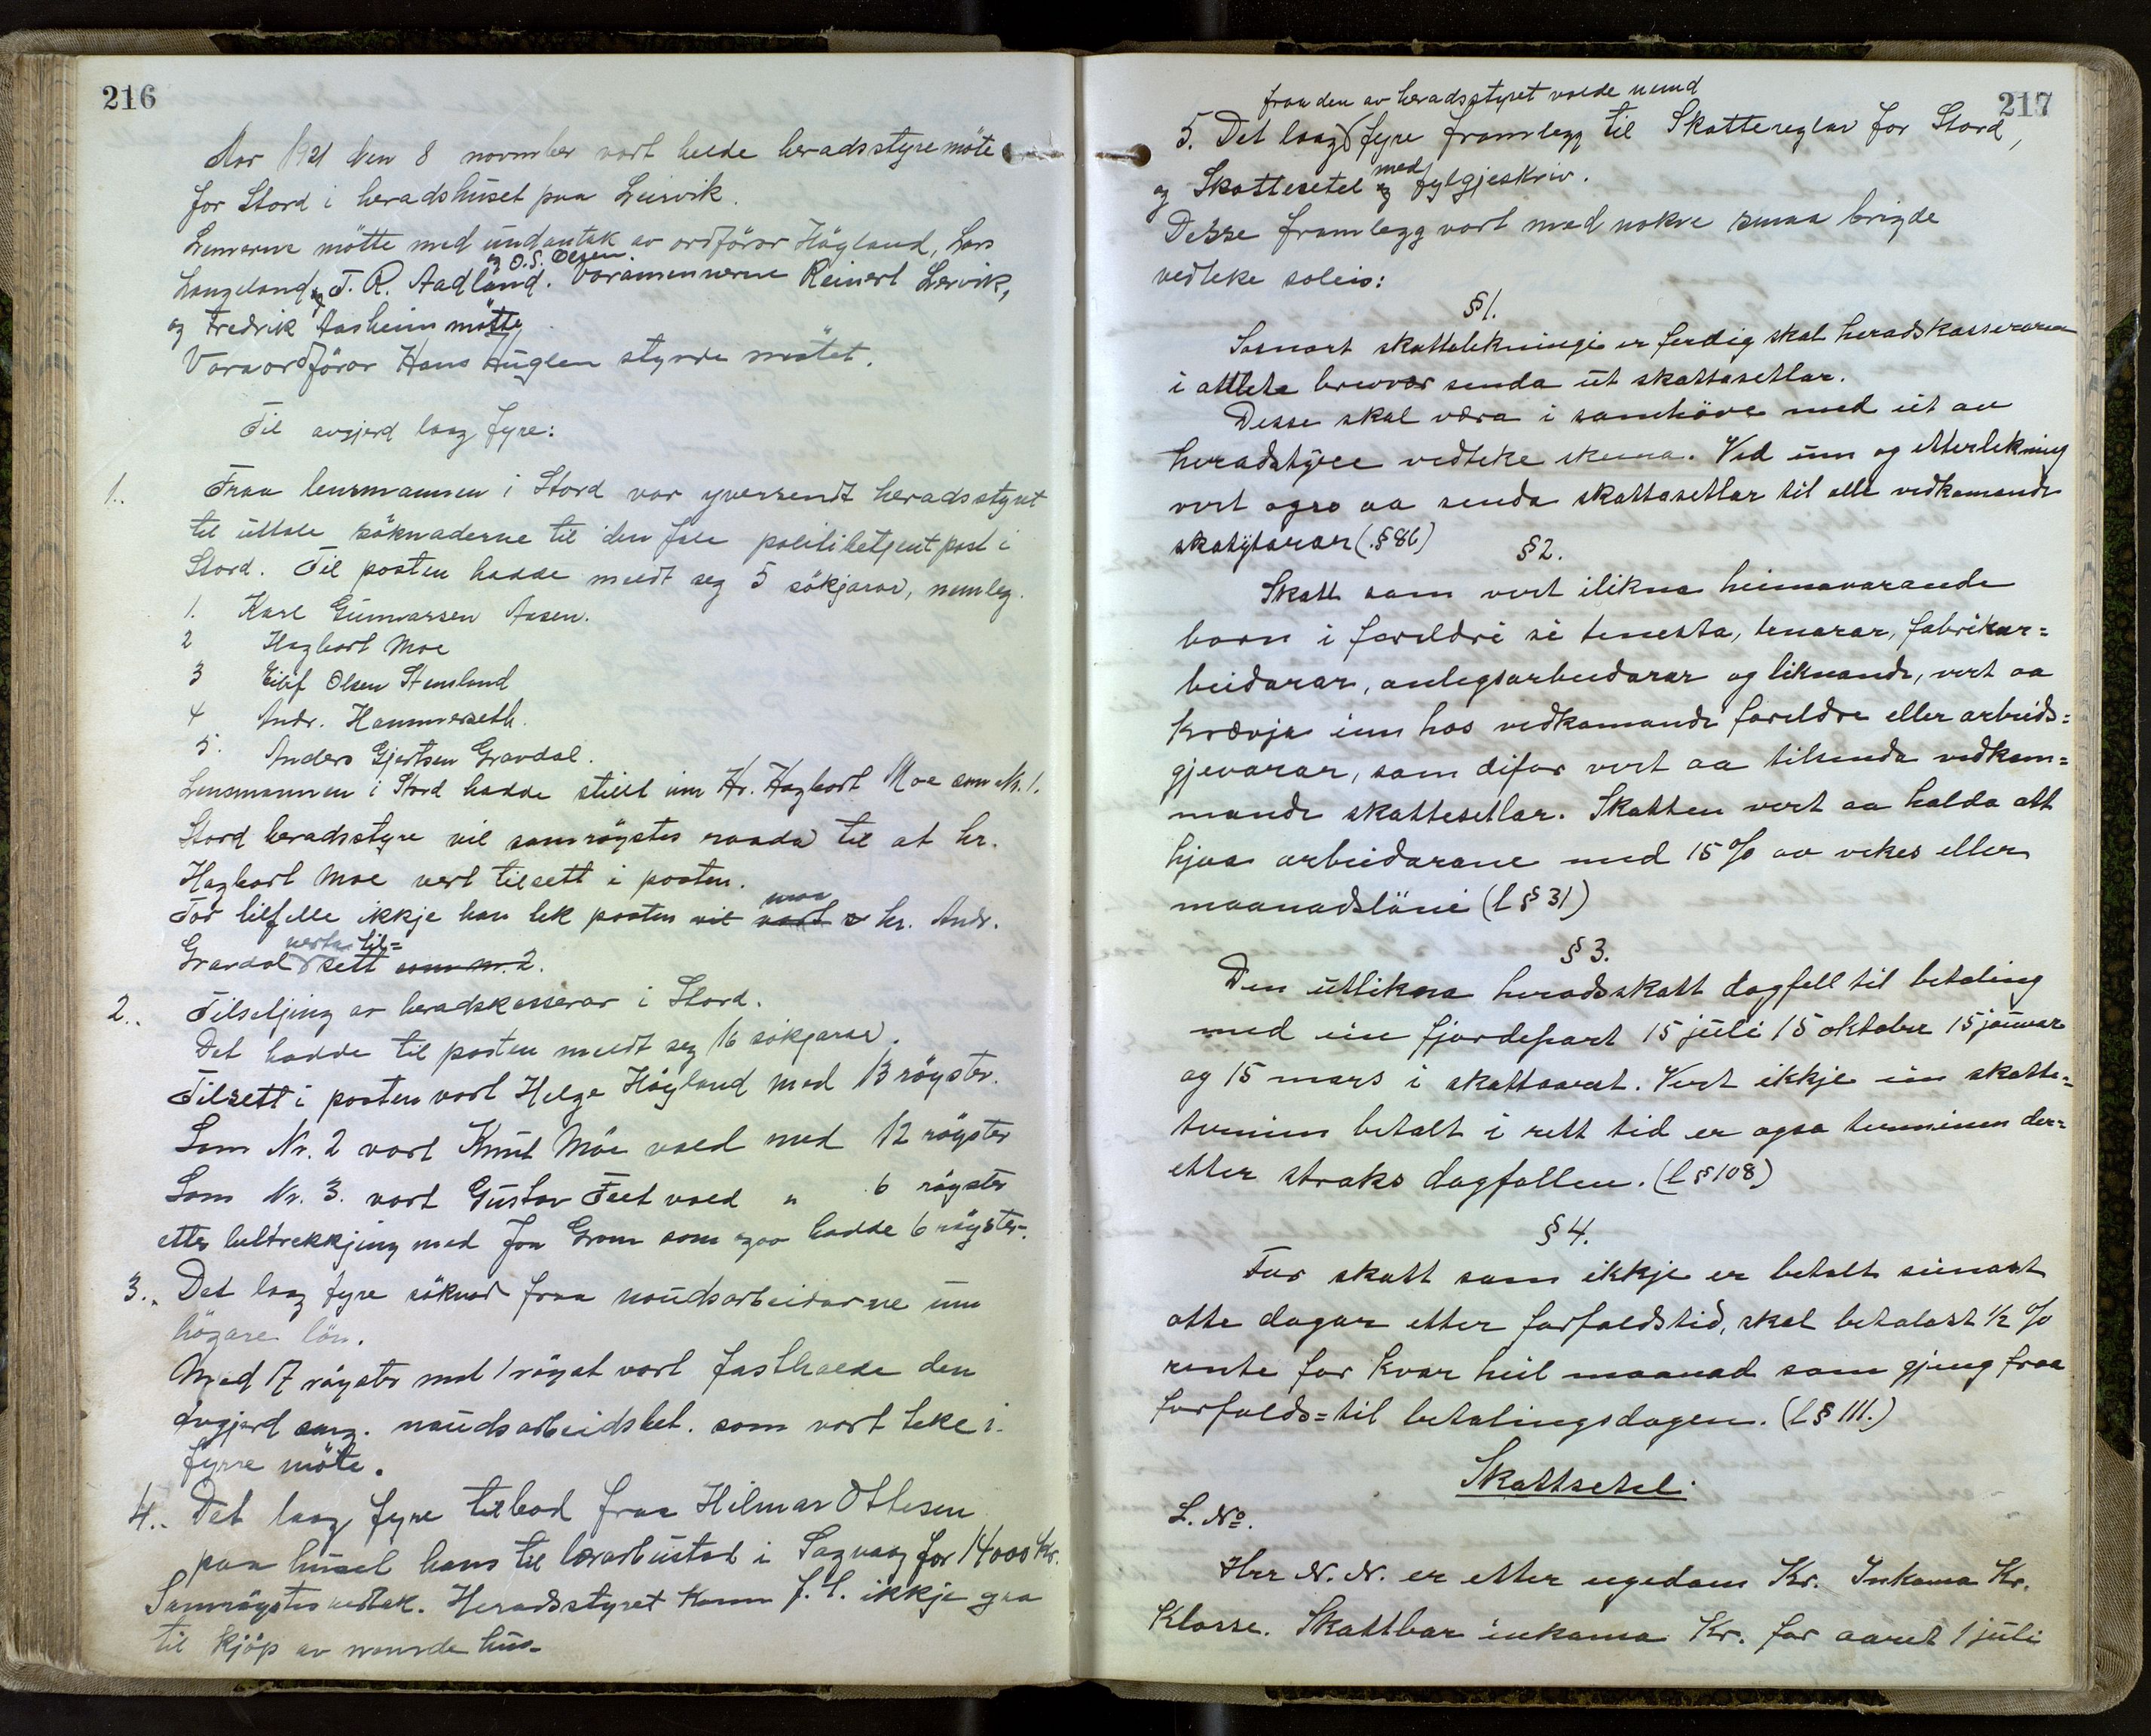 216
Aar 1921 den 8 november vart helde heradsstyremöte
for Stord i heradshuset paa Leirvik.
Lemerne mötte med undantak av ordförar Högland, Lars
Langeland, og T. R. Aadland. og O.S. Olsen. Varamennerne Reinert Lervik,
og Fredrik Aasheim mötte
Varaordförar Hans Huglen styrde mötet.
Til avgjerd laag fyre:
1. Fraa lensmannen i Stord var yversendt heradsstyret
til uttale söknaderne til den faste politibetjentpost i
Stord. Til posten hadde meldt seg 5 sökjarar, nemleg.
1. Karl Gunnarsen Aasen.
2 Hagbart Moe
3 Eilif Olsen Stensland
4 Andr. Hammerseth.
5. Anders Gjertsen Gravdal.
Lensmannen i Stord hadde stillt inn Hr. Hagbart Moe som Nr. 1.
Stord heradsstyre vil samröystes raada til at hr.
Hagbart Moe vert tilsett i posten.
For tilfelle ikkje han tek posten vil vart maa hr. Andr.
Gravdal verta til=
sett som nr. 2.
2. Tilseljing av heradskasserar i Stord.
Det hadde til posten meldt seg 16 sökjarar.
Tilsett i posten vart Helge Högland med 13 röyster.
Som Nr. 2 vart Knut Möe vald med 12 röyster
Som Nr. 3. vart Gustav Feet vald " 6 röyster
etter lutdrekkjing med Jon Grov som ogso hadde 6 röyster.
3. Det laag fyre söknad fraa naudsarbeidarne um
högare lön.
Med 17 röyster mot 1 röyst vart fasthalde den
avgjerd ang. naudsarbeidet. som vart teke i
fyrre möte.
4. Det laag fyre tilbod fraa Hilmar Ottesen
paa huset hans til lærarbustad i Sagvaag for 14000 Kr.
Samröystes vedtak. Heradsstyret kann f. t. ikkje gaa
til kjöp av nemnde hus.
217
fraa den av heradsstyret valde nemnd
5. Det laag fyre framlegg til Skattereglar for Stord,
og Skattesetel og med fylgjeskriv.
Desse framlegg vart med nokre smaa brigde
vedteke soleis:
§ 1.
Sosnart skattelikningi er ferdig skal heradskasseraren
i attlete brevver senda ut skattesetlar.
Desse skal væra i samhöve med eit av
heradstyre vedteke skema. Ved um og etterlikning
vert ogso aa senda skattasetlar til alle vedkomande
skatytarar (. § 86)
§ 2.
Skatt som vert ilikna heimaverande
born i foreldri si tenesta, tenarar, fabrikar=
beidarar, anlegsarbeidarar og liknande, vert aa
krævja inn hos vedkomande foreldre eller arbeids=
gjevarar, som difor vert aa tilsenda vedkom=
mande skattesetlar. Skatten vert aa halda att
hjaa arbeidarane med 15 % av vekes eller
maanadslöni (l § 31)
§ 3.
Den utlikna heradsskatt dagfell til betaling
med ein fjordepart 15 juli 15 oktober 15 januar
og 15 mars i skattaaret. Vert ikkje ein skatte=
termin betalt i rett tid er ogsa terminen der=
etter straks dagfallen. (l § 108)
§ 4.
For skatt som ikkje er betalt seinast
otte dagar etter forfaldstid, skal betalast 1/2 %
rente for kvar heil maanad som gjeng fraa
forfalds= til betalingsdagen. (l § 111.)
Skattsetel:
L. No.
Herr N. N. er etter eigedom Kr. Inkoma Kr.
Klasse. Skattbar inkoma Kr. for aaret 1 juli